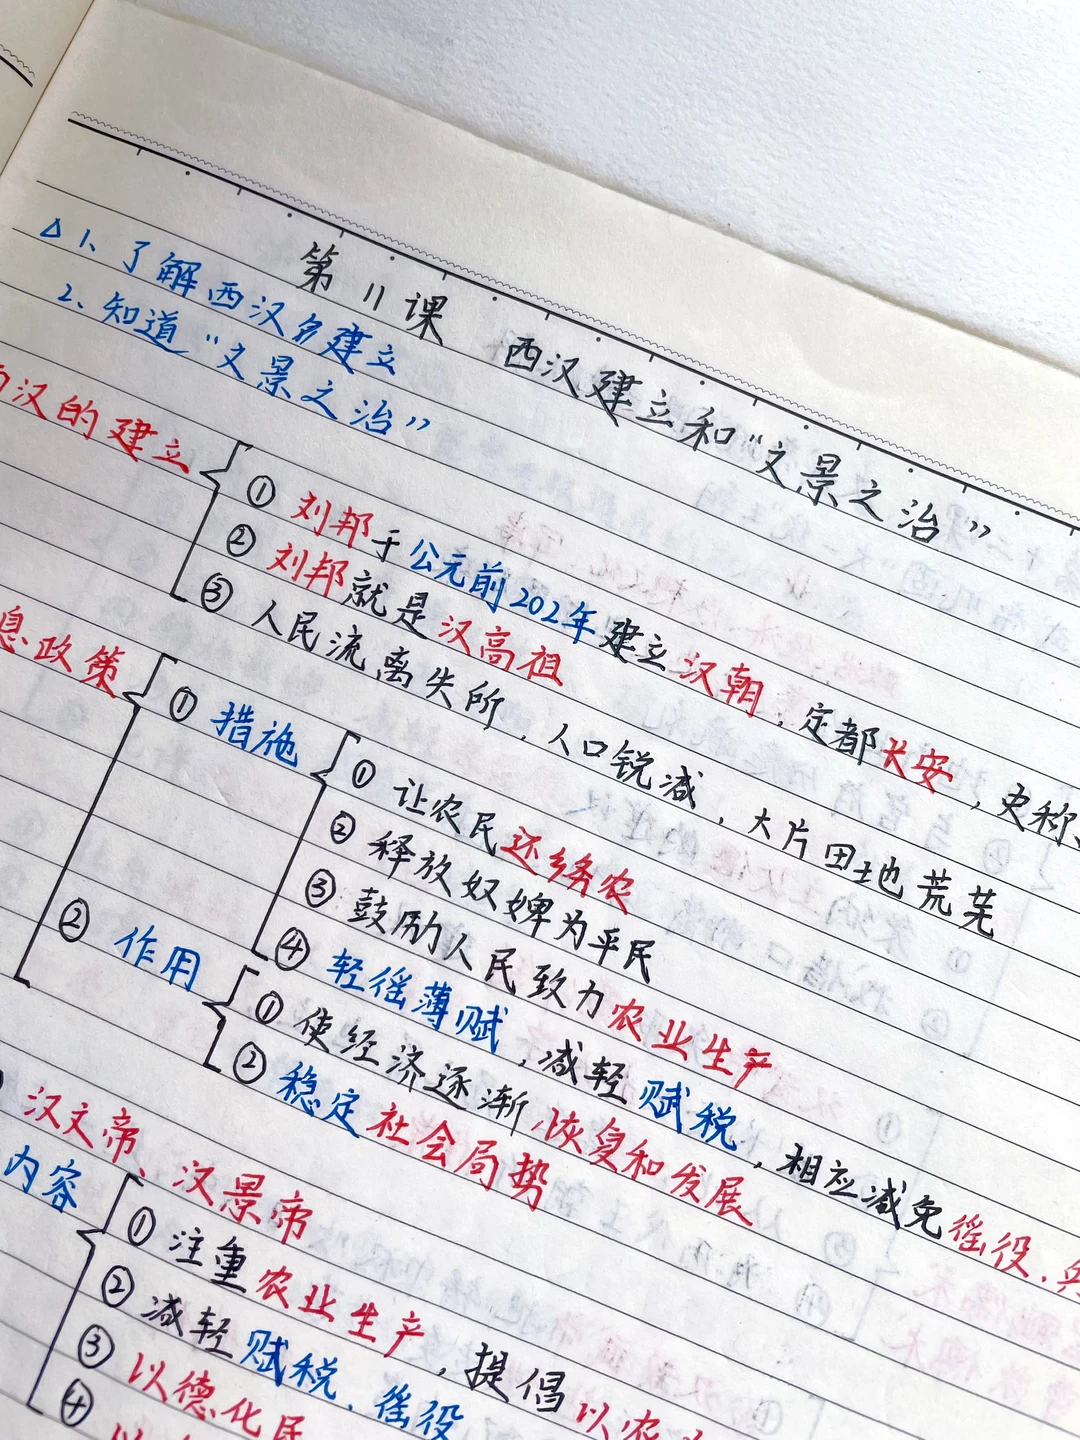 第11课 西汉建立和“文景之治”
△1、了解西汉的建立
2、知道“文景之治”
汉的建立
① 刘邦于公元前202年建立汉朝，定都长安，史称
② 刘邦就是汉高祖
③ 人民流离失所，人口锐减，大片田地荒芜
息政策
① 措施
① 让农民还乡务农
② 释放奴婢为平民
③ 鼓励人民致力农业生产
④ 轻徭薄赋，减轻赋税，相应减免徭役、
② 作用
① 使经济逐渐恢复和发展
② 稳定社会局势
汉文帝、汉景帝
内容
① 注重农业生产，提倡以农
② 减轻赋税、徭役
③ 以德化民
④ 以